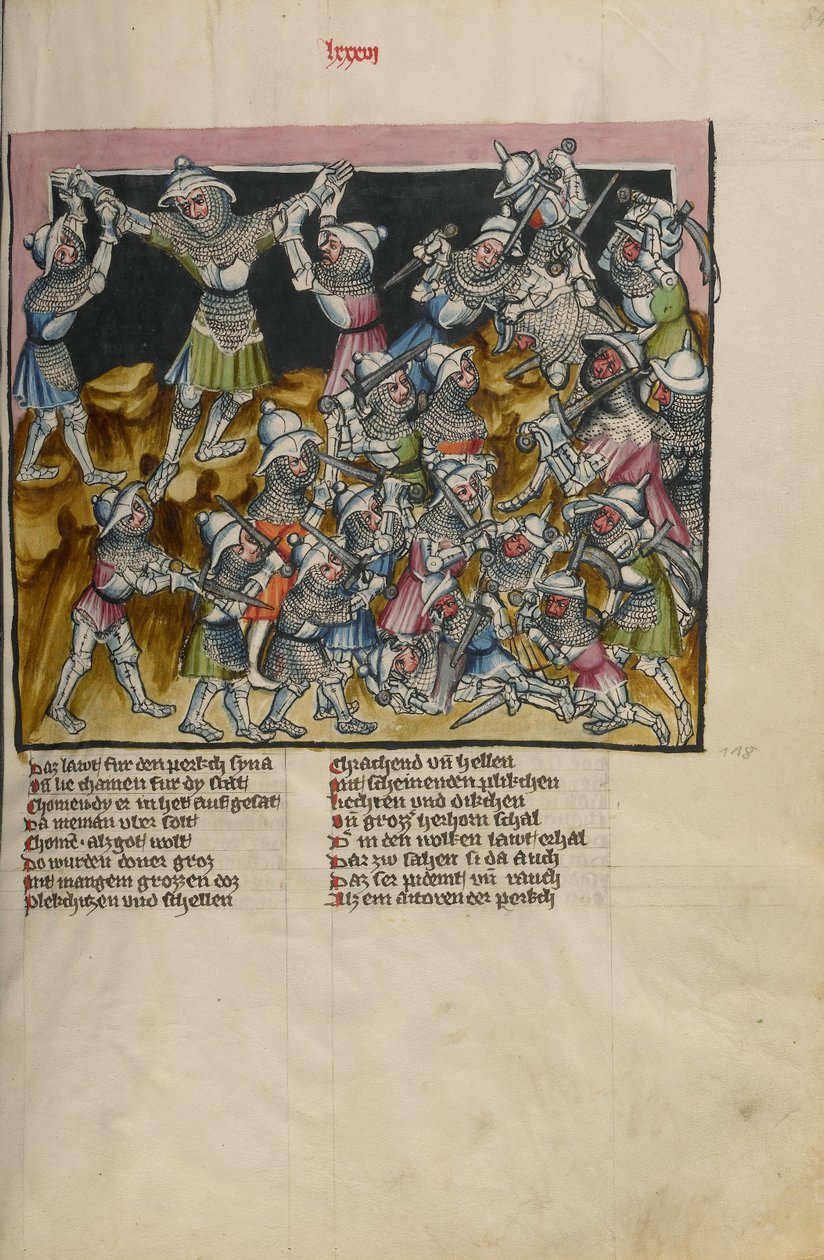 lxxxvi
84
118
Daz lawt fur den perkch syna
Vn̄ sie chamen fur dy stat
Chomen dy er in het auf gesat
Da nieman vber solt
Chomē · alz got wolt
Do wurden doner groz
Mit mangem grozzen doz
Plekchitzen und schellen
Chrachend vn̄ hellen
Mit scheinenden plikchen
Liechten und dikchen
Vn̄ groz herhorn schal
D in den wolken lawt erhal
Dar zw sahen si da auch
Daz ser pidemt vn̄ rauch
Alz ein aitoven der perkch